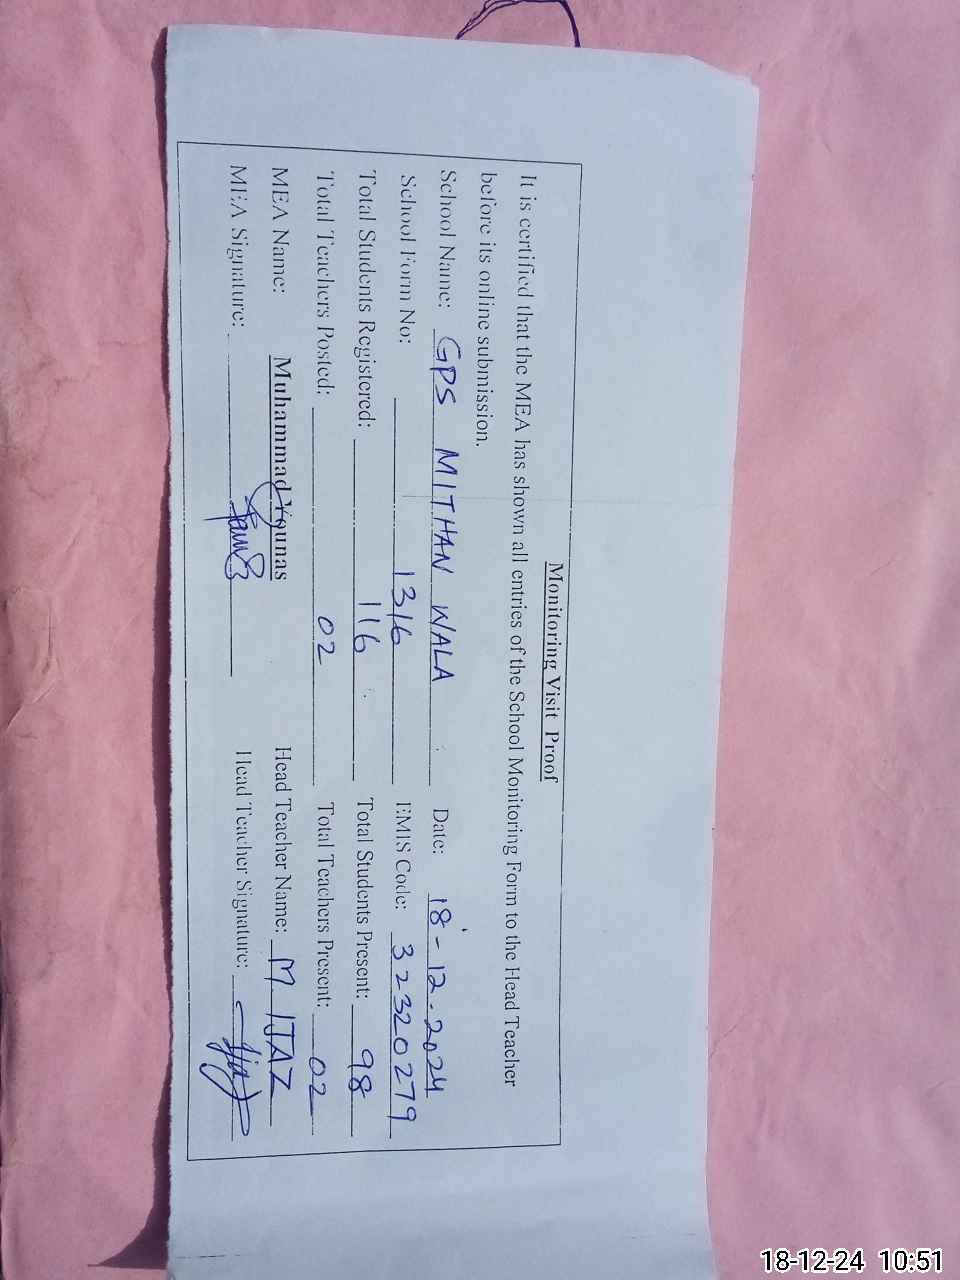 Monitoring Visit Proof
It is certified that the MEA has shown all entries of the School Monitoring Form to the Head Teacher
before its online submission.
School Name: GPS MITHAN WALA Date: 18-12-2024
School Form No: 1316 EMIS Code: 32320279
Total Students Registered: 116 Total Students Present: 98
Total Teachers Posted: 02 Total Teachers Present: 02
MEA Name: Muhammad Younas Head Teacher Name: M IJAZ
MEA Signature: Head Teacher Signature:
18-12-24 10:51